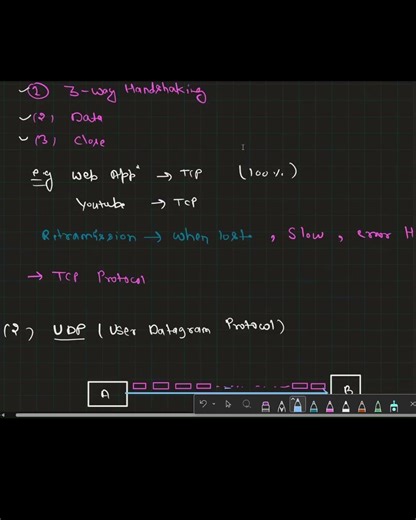 (1) 3-way Handshaking
(2) Data
(3) Close
eg Web App → TCP (100%)
Youtube → TCP
Retramission → when lost, Slow, error H
→ TCP Protocol
(2) UDP (User Datagram Protocol)
A B